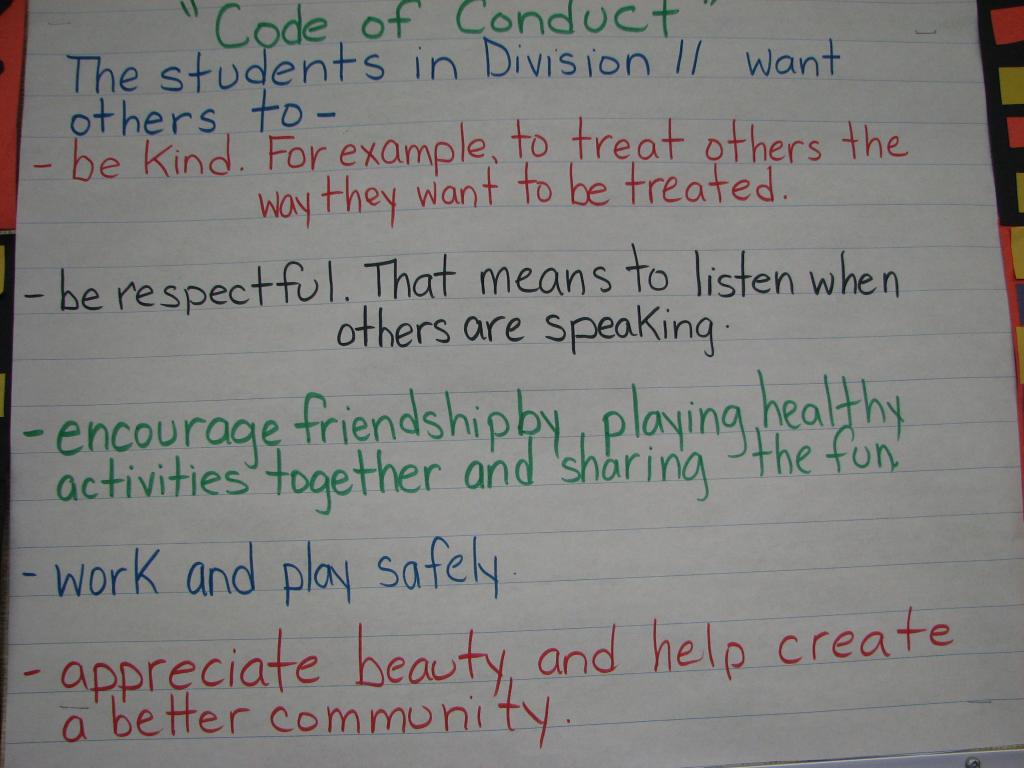 "Code of Conduct"
The students in Division 11 want
others to -
- be kind. For example, to treat others the
way they want to be treated.
- be respectful. That means to listen when
others are speaking.
- encourage friendship by, playing healthy
activities together and sharing the fun.
- work and play safely.
- appreciate beauty, and help create
a better community.